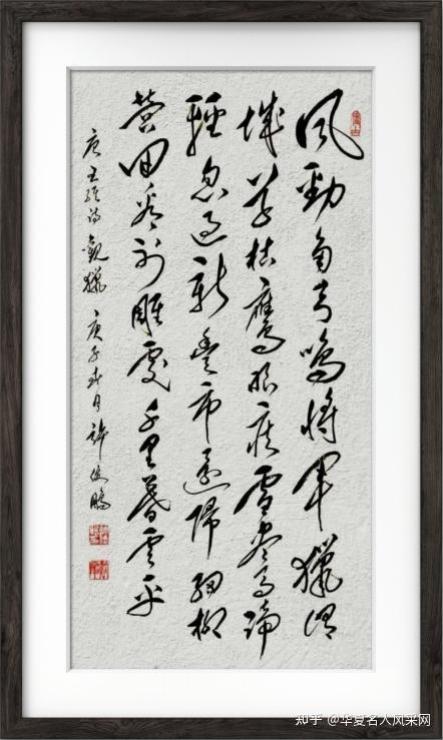 風勁角弓鳴將軍獵渭
城草枯鷹眼疾雪盡馬蹄
輕忽過新豐市還歸細柳
營回看射雕處千里暮雲平
唐王維詩觀獵 庚子 月許 鵬
知乎 @华夏名人风采网